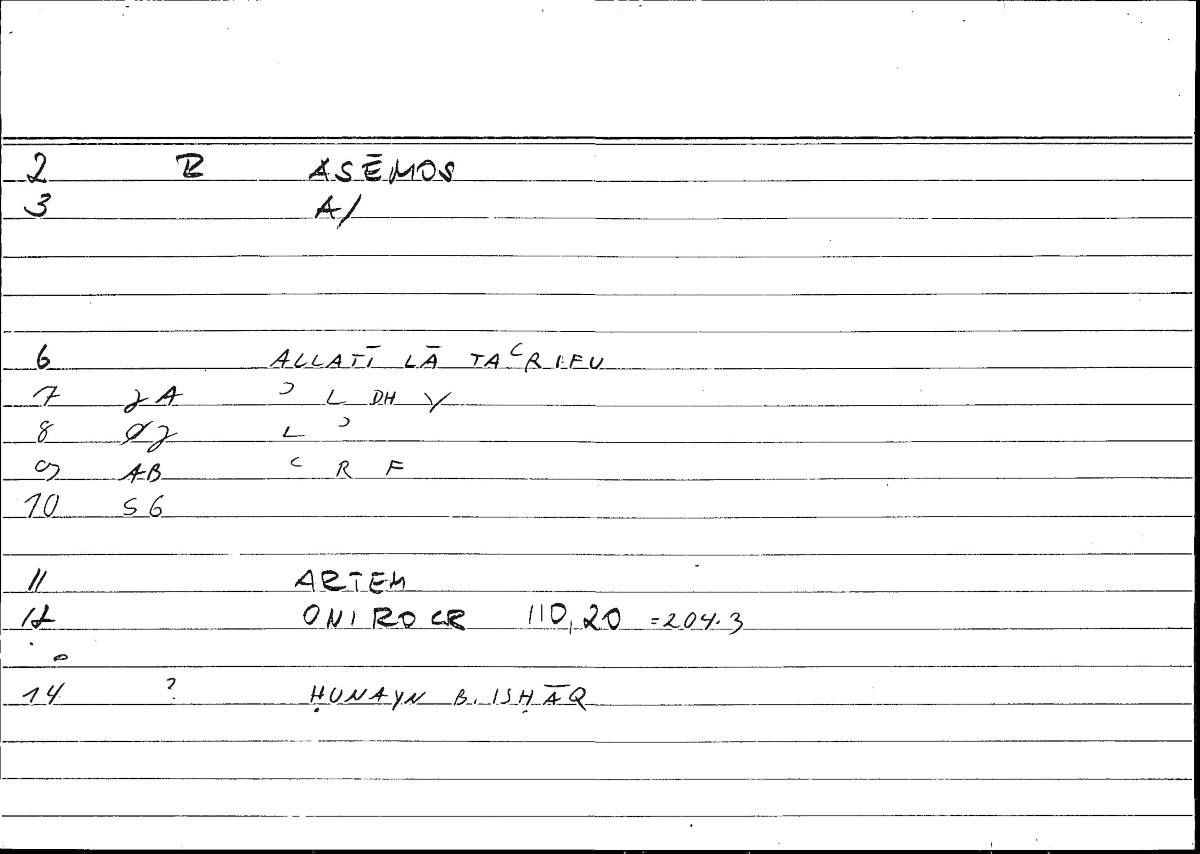 2 B ASĒMOS
3 A/
6 ALLATĪ LĀ TAʿRIFU
7 2A ʾ L DH Y
8 Ø2 L ʾ
9 AB ʿ R F
10 S6
11 ARTEM
12 ONIROCR 110,20 =204.3
14 ? ḤUNAYN B. ISḤĀQ